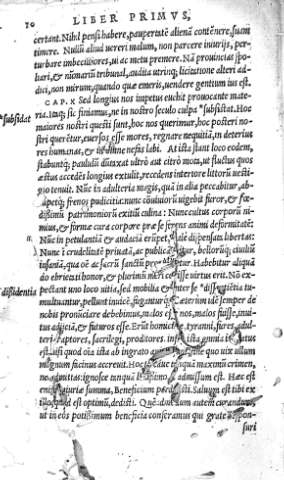 10 LIBER PRIMVS,
certant. Nihil pensi habere, paupertatē alienā contēnere, suam
timere. Nullū aliud vereri malum, non parcere iniurijs, per-
turbare imbecilliores, ui ac metu premere. Nā prouincias spo-
liari, & nūmariū tribunal, audita utrinq; licitatione alteri ad-
dici, non mirum, quando quæ emeris, uendere gentium ius est.
CAP. X Sed longius nos impetus euehit prouocante mate-
*subsidat ria. Itaq; sic finiamus, ne in nostro seculo culpa *subsistat. Hoc
maiores nostri questi sunt, hoc nos querimur, hoc posteri no-
stri querētur, euersos esse mores, regnare nequitiā, in deterius
res humanas, & in omne nefas labi. At ista stant loco eodem,
stabuntq; paululū duntaxat ultrò aut citrò mota, ut fluctus quos
æstus accedēs longius extulit, recedens interiore littorū uesti-
gio tenuit. Nūc in adulteria magis, quā in alia peccabitur, ab-
rūpetq; frenos pudicitia: nunc cōuiuiorū uigebit furor, & fœ-
dissimū patrimoniorū exitiū culina: Nunc cultus corporū ni-
mius, & formæ cura corpore præ se ferens animi deformitatē:
11. Nūc in petulantiā & audaciā erūpet, malè dispensata libertas:
Nunc ī crudelitatē priuatā, ac publicā ibitur, bellorūq; ciuiliū
insaniā, qua oē ac sacrū sanctū profanetur. Habebitur aliquā
do ebrietati honor, & plurimū meri cepisse virtus erit. Nō ex-
pectant uno loco uitia, sed mobilia & inter se
*dissidentia *dissentientia tu-
multuantur, pellunt inuicē, fuganturq;. Cæterum idē semper de
nobis pronūciare debebimus, malos esse nos, malos fuisse, inuitus
adijciā, & futuros esse. Erūt homicidæ, tyranni, fures, adul-
teri, raptores, sacrilegi, proditores. infra ista omnia ingratus
est. nisi quod oīa ista ab ingrato animo sunt, sine quo uix ullum
magnum facinus accreuit. Hoc tu caue tanquā maximū crimen,
ne admittas: ignosce tanquā leuissimo, si admissum est. Hæc est
enim iniuriæ summa. Beneficium perdidisti. Saluum est tibi ex
illo, quod est optimū, dedisti. Quēadmodum autem curandum,
ut in eos potissimum beneficia conferamus qui gratè respon-
suri